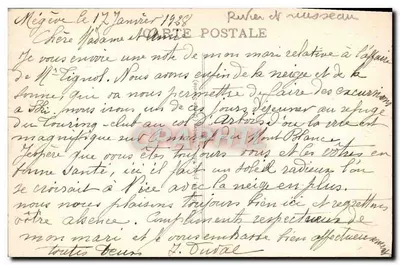 Megève le 17 Janvier 1928
River et ruisseau
CARTE POSTALE
Chère Madame et Amie
Je vous envoie une note de mon mari relative à l'affaire
de Mr Tignol. Nous avons enfin de la neige et de la
bonne, qui va nous permettre de faire des excursions
à Ski, nous irons un de ces jours déjeuner au refuge
du Touring-club au col d'Arbois d'ou la vue est
magnifique sur le massif du Mont Blanc.
J'espère que vous êtes toujours vous et les vôtres en
bonne santé, ici il fait un soleil radieux l'on
se croirait à Nice avec la neige en plus.
nous nous plaisons toujours bien ici et regrettons
vôtre absence. Compliments respectueux de
mon mari et je vous embrasse bien affectueusement
toutes deux J. Duval